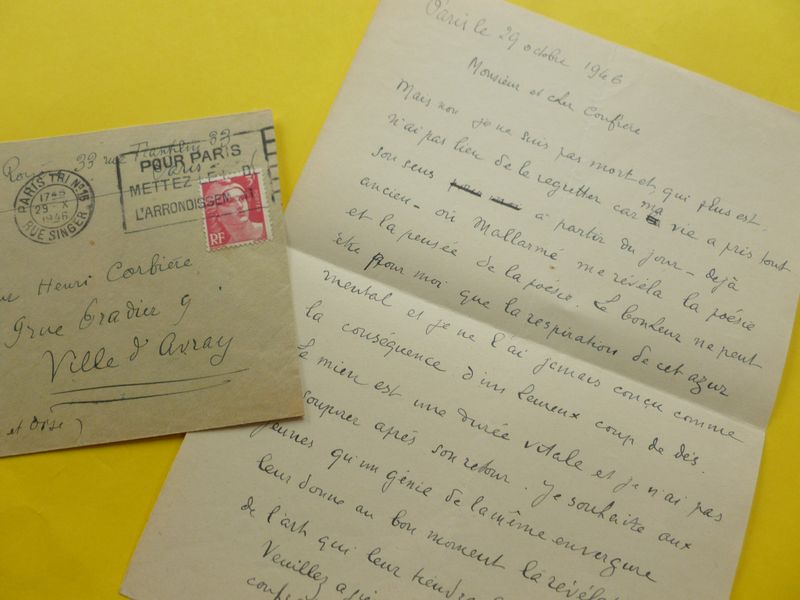 33 rue Franklin 33
Paris
PARIS TRI N°16
1745
29 X
1946
RUE SINGER
POUR PARIS
METTEZ
L'ARRONDISSEM
RF
Henri Corbière
9 rue Pradier 9
Ville d'Avray
et Oise)
Paris le 29 octobre 1946
Monsieur et cher Confrère
Mais non je ne suis pas mort et, qui plus est.
n'ai pas lieu de le regretter car ma vie a pris tout
son sens à partir du jour – dejà
ancien – où Mallarmé me révéla la poésie
et la pensée de la poésie. Le bonheur ne peut
être pour moi que la respiration de cet azur
mental et je ne l'ai jamais conçu comme
la conséquence d'un heureux coup de dés.
Le mien est une durée vitale et je n'ai pas
soupirer après son retour. Je souhaite aux
jeunes qu'un génie de la même envergure
leur donne au bon moment la révélat
de l'art qui leur tiendra
Veuillez agré
confrè